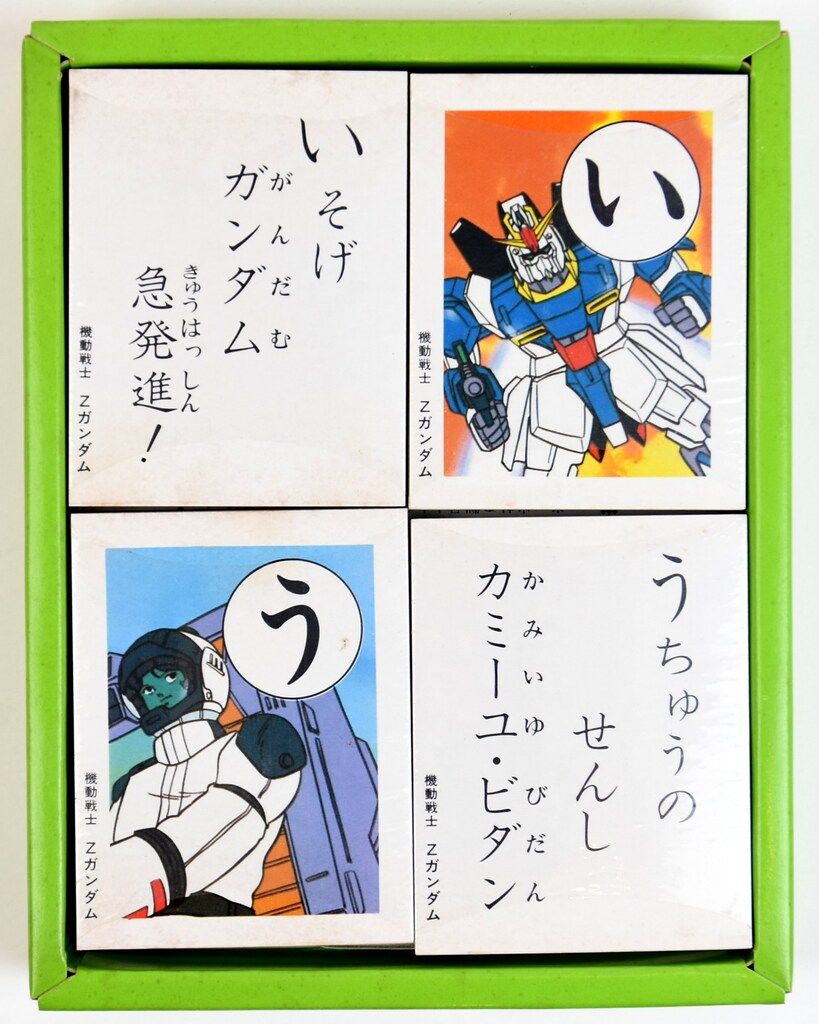 いそげ
ガンダム
がんだむ
急発進！
きゅうはっしん
機動戦士 Ζガンダム
い
機動戦士 Ζガンダム
う
機動戦士 Ζガンダム
うちゅうの
せんし
カミーユ・ビダン
かみいゆ びだん
機動戦士 Ζガンダム